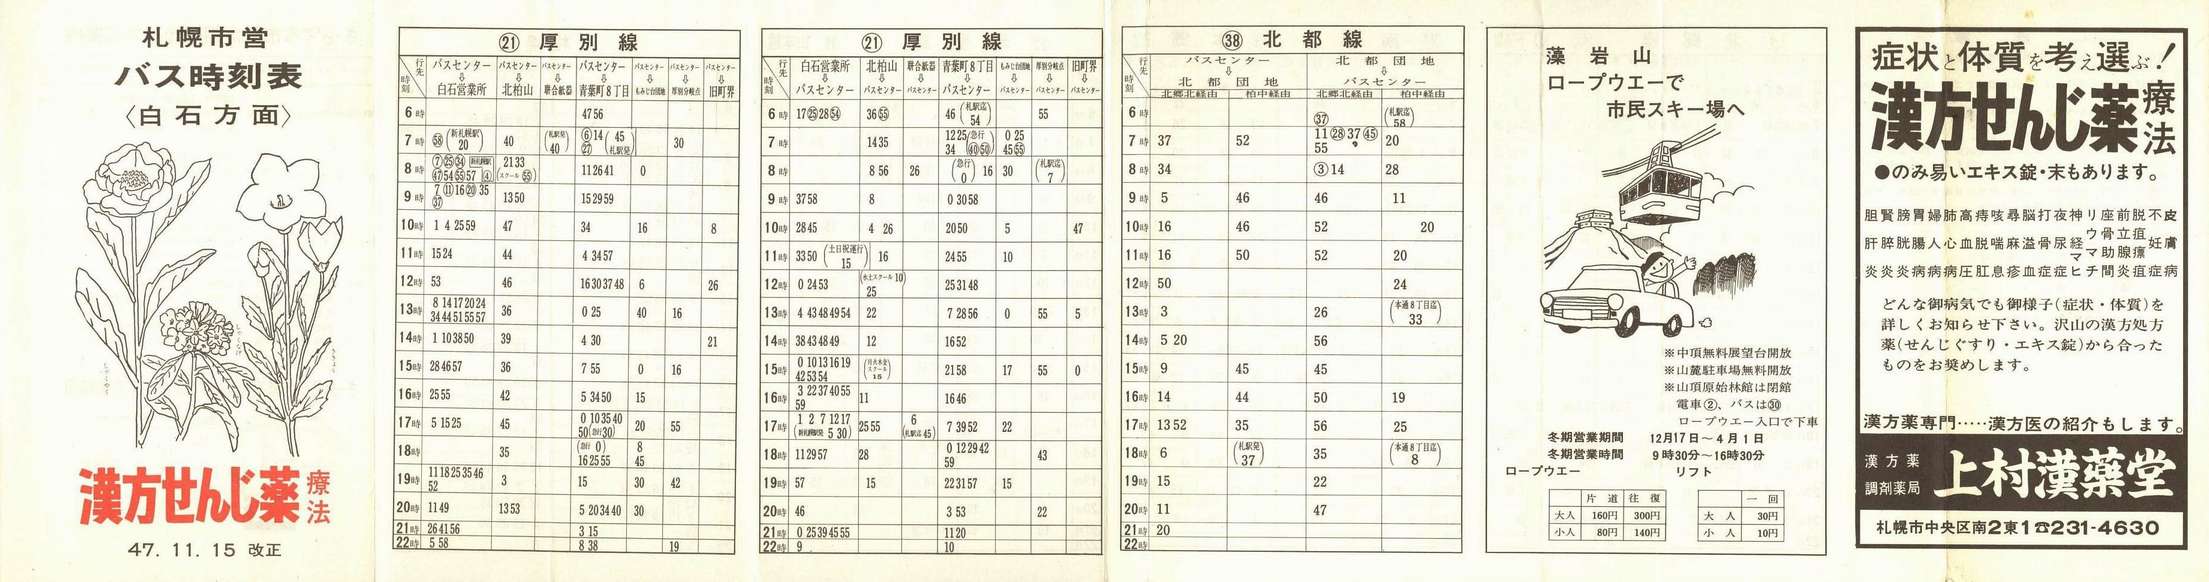 札幌市営
バス時刻表
〈白石方面〉
漢方せんじ薬療法
47. 11. 15 改正
㉑ 厚別線
行先 時刻 バスセンター⇨白石営業所 バスセンター⇨北柏山 バスセンター⇨聯合紙器 バスセンター⇨青葉町8丁目 バスセンター⇨もみじ台団地 バスセンター⇨厚別分岐点 バスセンター⇨旧町界
6時 47 56
7時 (58) (新札幌駅 20) 40 (札駅発 40) (6) 14 (27) (45 札駅発) 30
8時 (7)(25)(34) 新札幌駅 (4) (47) 54 (55) 57 21 33 (スクール (55)) 11 26 41 0
9時 7 (11) 16 (20) 35 (37) 13 50 15 29 59
10時 1 4 25 59 47 34 16 8
11時 15 24 44 4 34 57
12時 53 46 16 30 37 48 6 26
13時 8 14 17 20 24 34 44 51 55 57 36 0 25 40 16
14時 1 10 38 50 39 4 30 21
15時 28 46 57 36 7 55 0 16
16時 25 55 42 5 34 50 15
17時 5 15 25 45 0 10 35 40 50 (急行 30) 20 55
18時 35 (急行 0) 16 25 55 8 45
19時 11 18 25 35 46 52 3 15 30 42
20時 11 49 13 53 5 20 34 40 30
21時 26 41 56 3 15
22時 5 58 8 38 19
㉑ 厚別線
行先 時刻 白石営業所⇨バスセンター 北柏山⇨バスセンター 聯合紙器⇨バスセンター 青葉町8丁目⇨バスセンター もみじ台団地⇨バスセンター 厚別分岐点⇨バスセンター 旧町界⇨バスセンター
6時 17 (25) 28 (54) 36 (55) 46 (札駅迄 54) 55
7時 14 35 12 25 34 (急行 (40)(50)) 0 25 45 (55)
8時 8 56 26 (急行 0) 16 30 (札駅迄 7)
9時 37 58 8 0 30 58
10時 28 45 4 26 20 50 5 47
11時 33 50 (土日祝運行 15) 16 24 55 10
12時 0 24 53 (水土スクール 10) 25 25 31 48
13時 4 43 48 49 54 22 7 28 56 0 55 5
14時 38 43 48 49 12 16 52
15時 0 10 13 16 19 42 53 54 (月火木金 スクール 15) 21 58 17 55 0
16時 3 22 37 40 55 59 11 16 46
17時 1 2 7 12 17 (新札幌駅発 5 30) 25 55 6 (札駅迄 45) 7 39 52 22
18時 11 29 57 28 0 12 29 42 59 43
19時 57 15 22 31 57 15
20時 46 3 53 22
21時 0 25 39 45 55 11 20
22時 9 10
㊳ 北都線
行先 時刻 バスセンター⇨北都団地 北都団地⇨バスセンター
北郷北経由 柏中経由 北郷北経由 柏中経由
6時 (37) (札駅迄 58)
7時 37 52 11 (28) 37 (45) 55 20
8時 34 (3) 14 28
9時 5 46 46 11
10時 16 46 52 20
11時 16 50 52 20
12時 50 24
13時 3 26 (本通8丁目迄 33)
14時 5 20 56
15時 9 45 45
16時 14 44 50 19
17時 13 52 35 56 25
18時 6 (札駅発 37) 35 (本通8丁目迄 8)
19時 15 22
20時 11 47
21時 20
22時
藻岩山
ロープウエーで
市民スキー場へ
※中頂無料展望台開放
※山麓駐車場無料開放
※山頂原始林館は閉館
電車②、バスは㉚
ロープウエー入口で下車
冬期営業期間 12月17日～4月1日
冬期営業時間 9時30分～16時30分
ロープウエー リフト
片道 往復
大人 160円 300円
小人 80円 140円
一回
大人 30円
小人 10円
症状と体質を考え選ぶ！
漢方せんじ薬療法
●のみ易いエキス錠・末もあります。
胆腎膀胃婦肺高痔咳尋脳打夜神リ座前脱不皮
ウ骨立疽
肝膵胱腸人心血脱喘麻溢骨尿経マ助腺瘭妊膚
炎炎炎病病病圧肛息疹血症症ヒチ間炎疽症病
どんな御病気でも御様子(症状・体質)を
詳しくお知らせ下さい。沢山の漢方処方
薬(せんじぐすり・エキス錠)から合った
ものをお奨めします。
漢方薬専門‥‥‥漢方医の紹介もします。
漢方薬
調剤薬局
上村漢薬堂
札幌市中央区南2東1☎231-4630